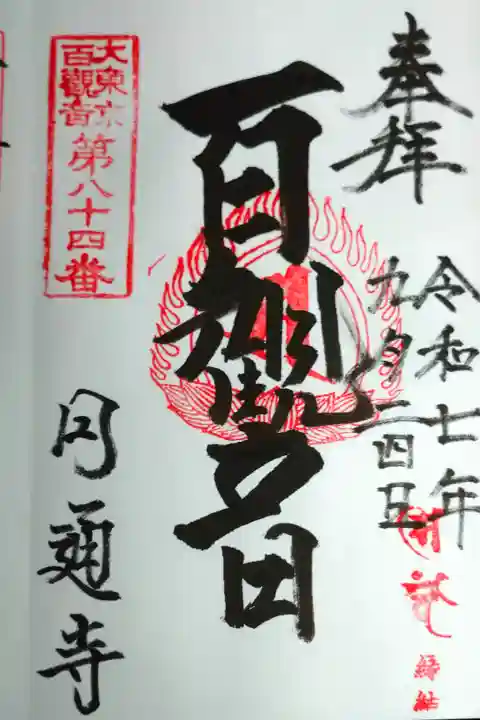 奉拝
令和七年
九月二四日
百観音
大東京
百觀音
第八十四番
円通寺
結縁